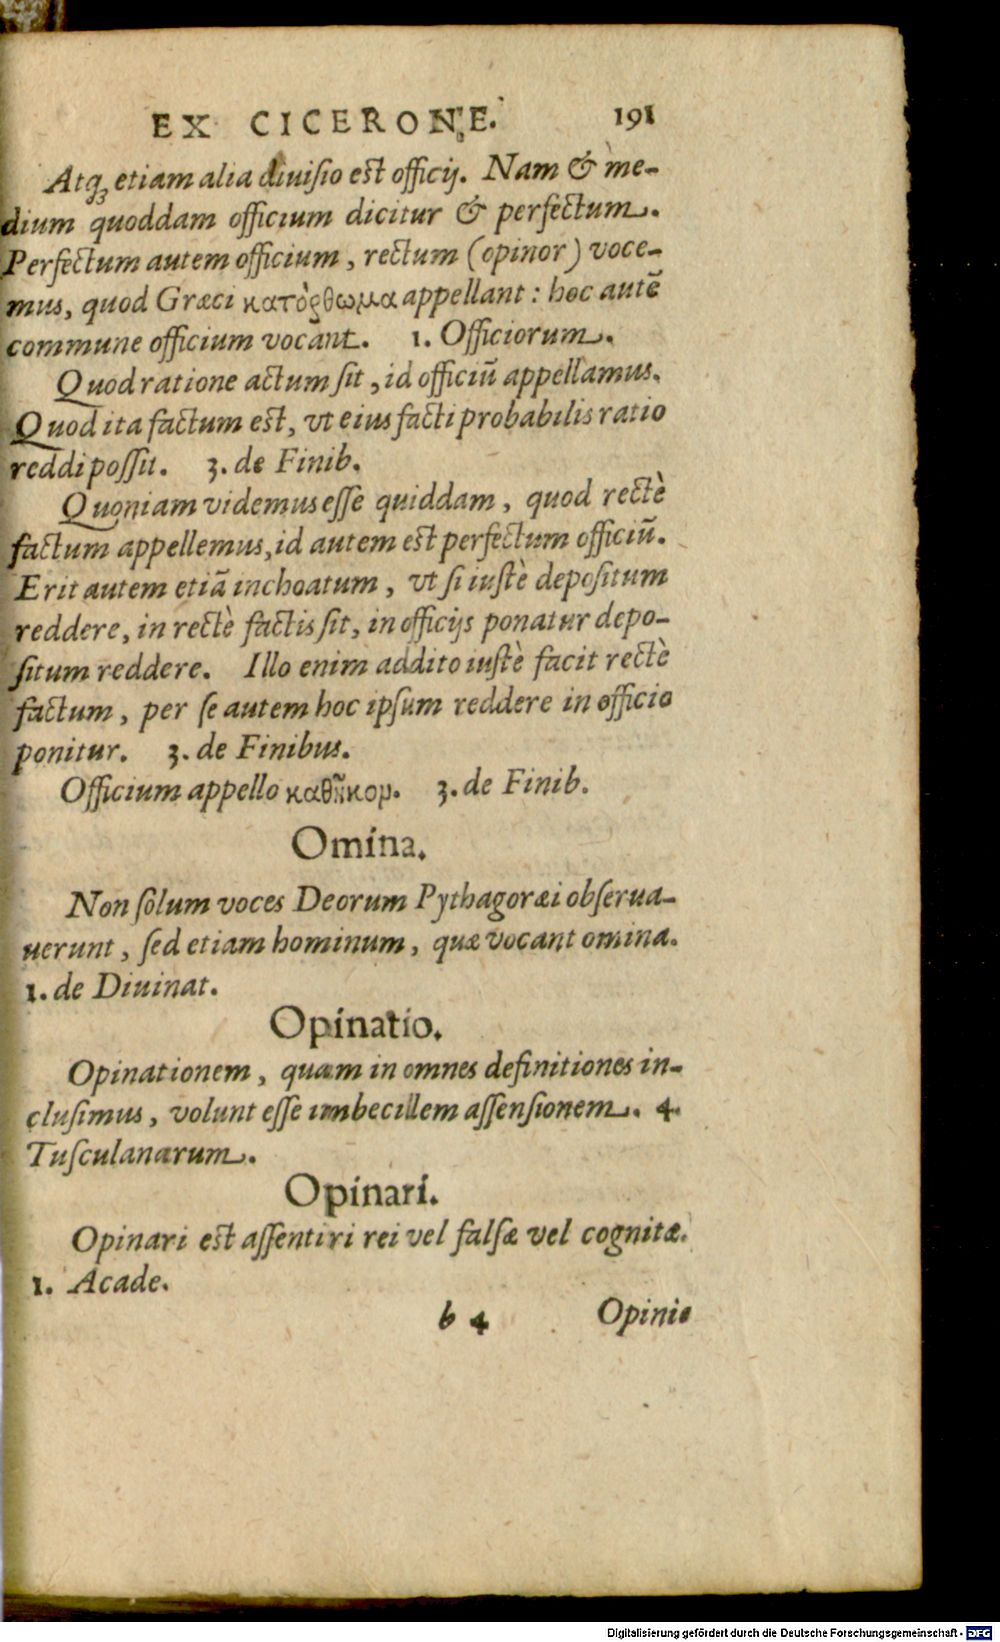 EX CICERONE. 191
Atq; etiam alia diuiſio est officij. Nam & me-
dium quoddam officium dicitur & perfectum.
Perfectum autem officium, rectum (opinor) voce-
mus, quod Græci κατόρθωμα appellant: hoc autē
commune officium vocant. 1. Officiorum.
Quod ratione actum ſit, id officiū appellamus.
Quod ita factum est, vt eius facti probabilis ratio
reddi poſſit. 3. de Finib.
Quoniam videmus eſſe quiddam, quod rectè
factum appellemus, id autem est perfectum officiū.
Erit autem etiā inchoatum, vt ſi iuſtè depoſitum
reddere, in rectè factis ſit, in officijs ponatur depo-
ſitum reddere. Illo enim addito iuſtè facit rectè
factum, per ſe autem hoc ipſum reddere in officio
ponitur. 3. de Finibus.
Officium appello καθῆκον. 3. de Finib.
Omina.
Non ſolum voces Deorum Pythagoræi obſerua-
uerunt, ſed etiam hominum, quæ vocant omina.
1. de Diuinat.
Opinatio.
Opinationem, quam in omnes definitiones in-
cluſimus, volunt eſſe imbecillem aſſenſionem. 4.
Tuſculanarum.
Opinari.
Opinari est aſſentiri rei vel falſæ vel cognitæ.
1. Acade.
b 4 Opinio
Digitalisierung gefördert durch die Deutsche Forschungsgemeinschaft - DFG